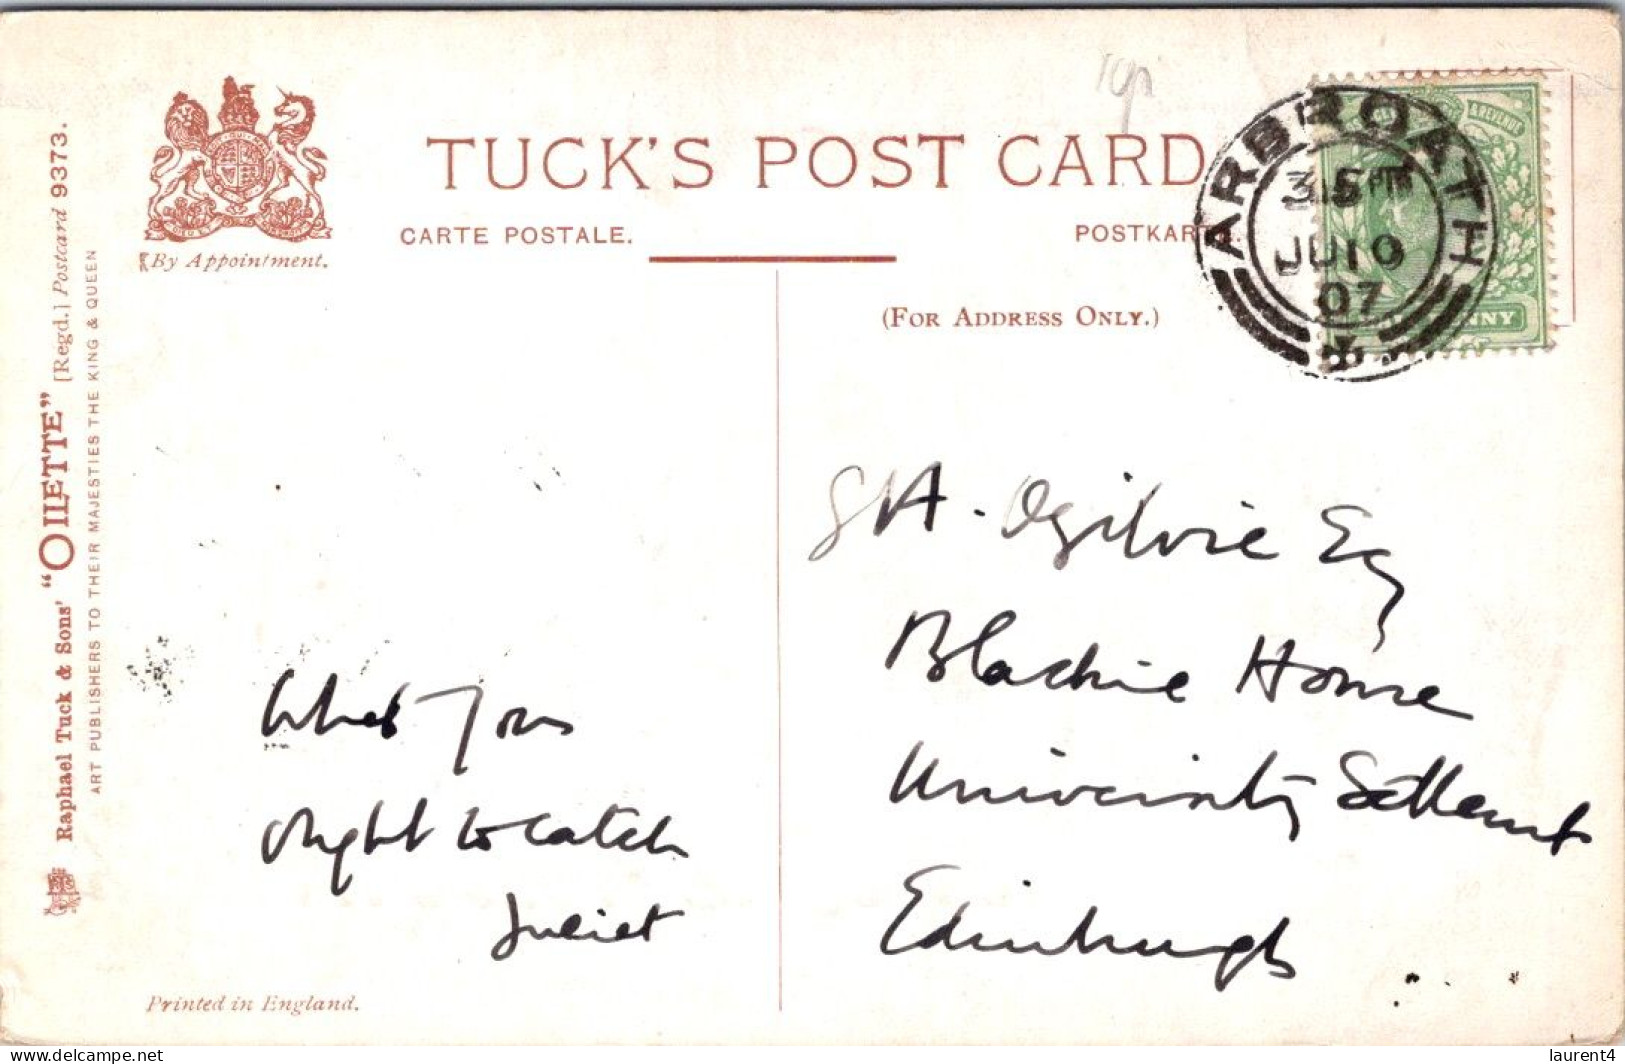 TUCK'S POST CARD
CARTE POSTALE.
POSTKARTE.
By Appointment.
(FOR ADDRESS ONLY.)
ARBROATH
315 PM
JU 10
07
REVENUE
NNY
Raphael Tuck & Sons' "OILETTE" [Regd.] Postcard 9373.
ART PUBLISHERS TO THEIR MAJESTIES THE KING & QUEEN
What you
ought to catch
Juliet
A. Ogilvie Esq
Blackie House
University Settlement
Edinburgh
Printed in England.
delcampe.net
laurent4